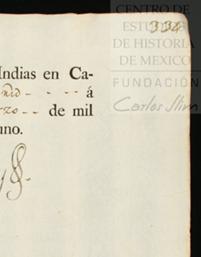 CENTRO DE
ESTUDIOS
DE HISTORIA
DE MEXICO
FUNDACIÓN
Carlos Slim
334
Indias en Ca-
á
de mil
uno.